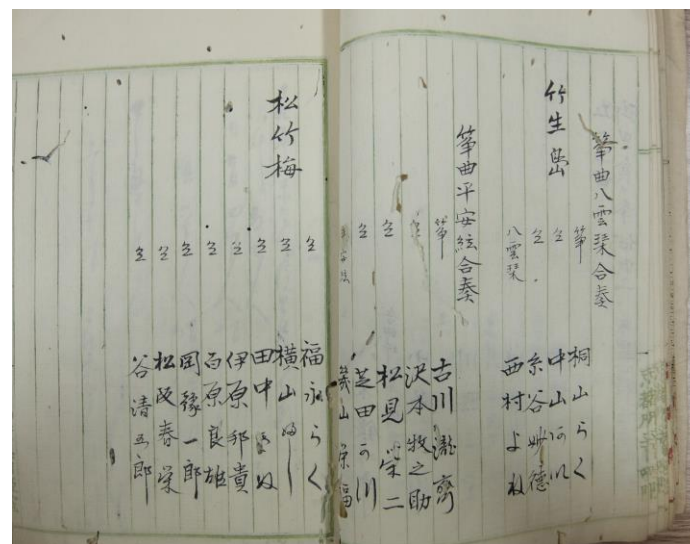 箏曲八雲琴合奏
竹生島
箏 桐山らく
仝 中山
仝 糸谷妙徳
八雲琴 西村よね
箏曲平安絃合奏
箏 古川瀧斎
仝 沢本牧之助
仝 松見栄二
仝 芝田
山栄福
松竹梅
仝 福永らく
仝 横山
仝 田中
仝 伊原邦貴
仝 百原良雄
仝 岡豫一郎
仝 松阪春栄
仝 谷清五郎